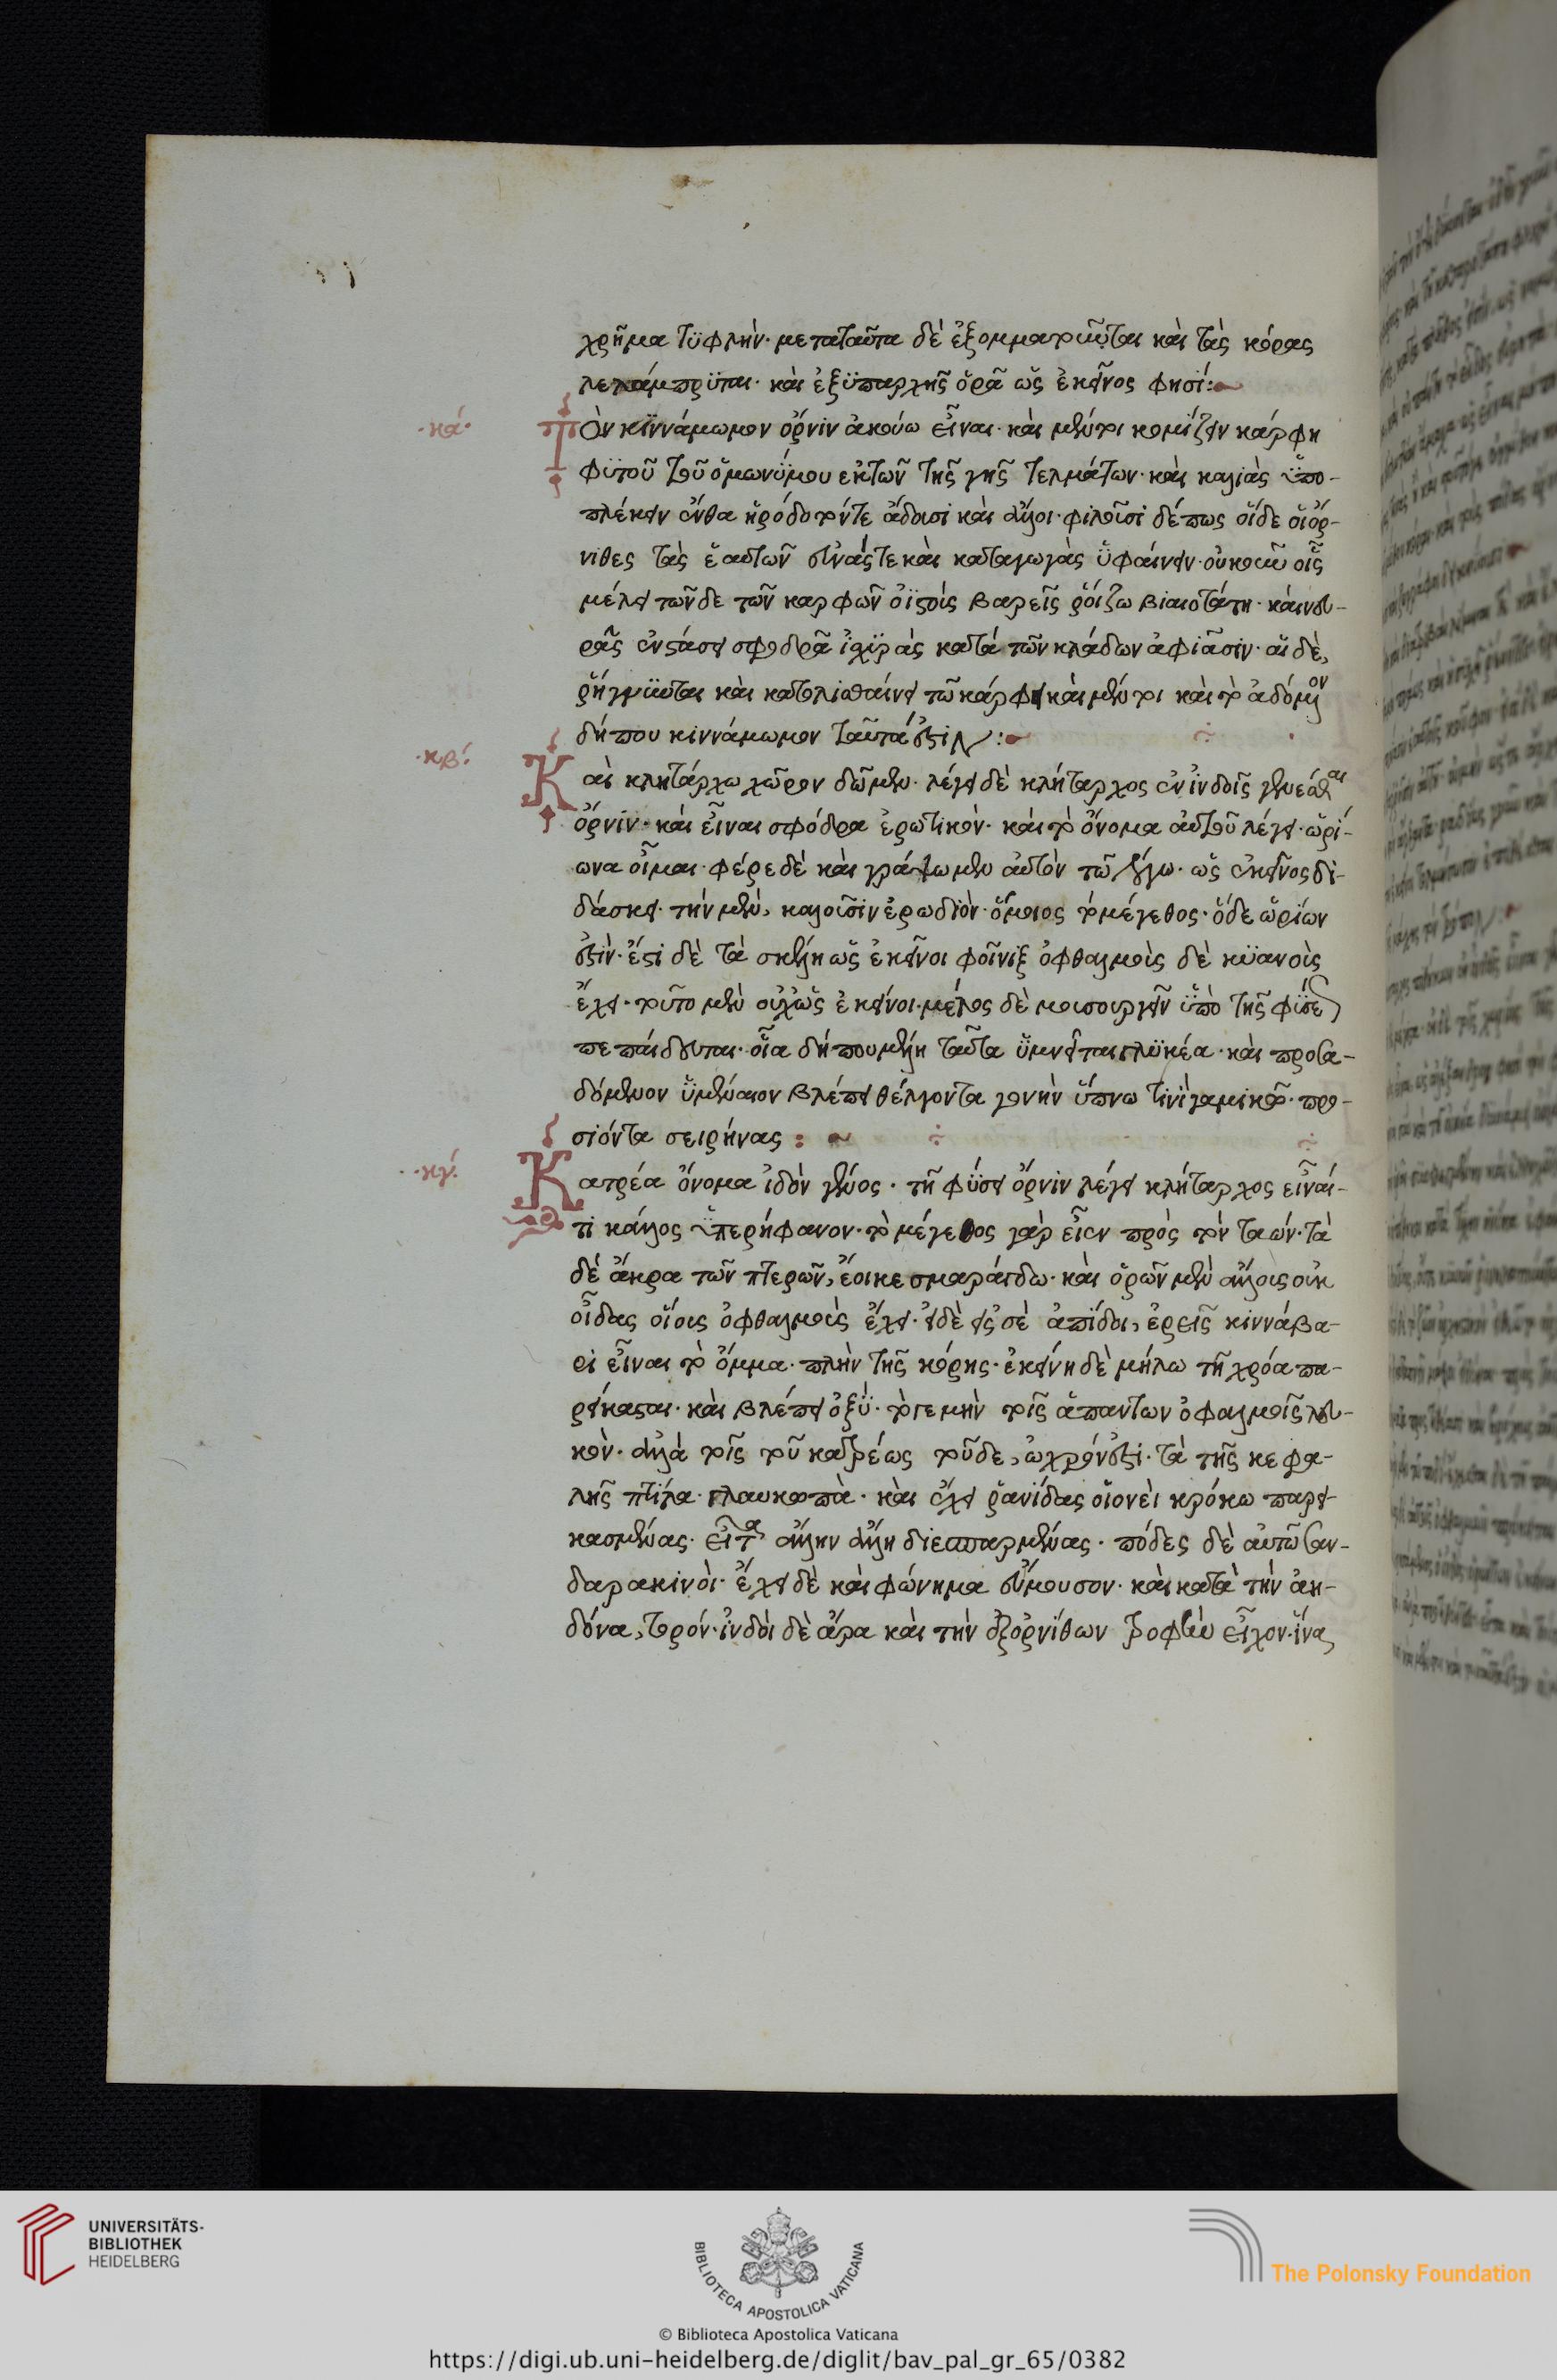 χρῆμα τϋφλήν· μεταταῦτα δὲ ἐξομματοῦται καὶ τὰς κόρας
λελάμπρϋται· καὶ ἐξϋπαρχῆς ὁρᾶ ὡς ἐκεῖνος φησί:
·κα·
Τὸν κϊννάμωμον ὄρνιν ἀκούω εἶναι· καὶ μέντοι κομίζειν κάρφη
φϋτοῦ τοῦ ὁμωνϋμου ἐκτῶν τῆς γῆς τελμάτων· καὶ καλιὰς ὑπο-
πλέκειν ἔνθα ἡρόδοτόντε ἄδουσι καὶ ἄλλοι· φιλοῦσι δέπως οἵδε οἱ ὄρ-
νιθες τὰς ἑαυτῶν εὐνάς τε καὶ καταγωγὰς ὑφαίνειν· οὐκοῦν οἷς
μέλει τῶνδε τῶν καρφῶν ὀϊστοῖς βαρεῖς ῥοίζω βιαιοτάτη· καὶ νευ-
ρᾶς ἐντάσει σφοδρᾶ ἰσχϋρὰς κατὰ τῶν κλάδων ἀφιᾶσιν· αἱ δὲ,
ῥήγνϋνται καὶ κατολισθαίνει τῶ κάρφει καὶ μέντοι καὶ τὸ ἀδόμενον
δήπου κιννάμωμον ταῦτά ἐστιν:
·κβ·
Καὶ κλητάρχω χῶρον δῶμεν· λέγει δὲ κλήταρχος ἐν ἰνδοῖς γενέσθαι
ὄρνιν· καὶ εἶναι σφόδρα ἐρωτικὸν· καὶ τὸ ὄνομα αὐτοῦ λέγει· ὡρί-
ωνα οἶμαι· φέρε δὲ καὶ γράψωμεν αὐτὸν τῶ λόγω· ὡς ἐκεῖνος δι-
δάσκει· τὴν μὲν, καλοῦσιν ἐρωδιὸν· ὅμοιος τὸ μέγεθος· ὅδε ὡρίων
ἐστὶν· ἔστι δὲ τὰ σκέλη ὡς ἐκεῖνοι φοῖνιξ ὀφθαλμοὺς δὲ κϋανοῦς
ἔχει· τοῦτο μὲν οὐχ ὡς ἐκεῖνοι· μέλος δὲ μουσουργεῖν ὑπὸ τῆς φϋσε
πεπαίδευται· οἷα δήπου μέλη ταῦτα ὑμνεῖται γλϋκέα· καὶ προτα-
δόμενον ὑμέναιον βλέπει θέλγοντα γονὴν ὕπνω τινὶ γαμικοῦ· προ-
σϊόντα σειρήνας:
·κγ·
Κατρέα ὄνομα ἰδὸν γένος· τῆ φϋσει ὄρνιν λέγει κλήταρχος εἶναί-
τι κάλλος ὑπερήφανον· τὸ μέγεθος γὰρ εἶεν πρὸς τὸν ταών· τὰ
δὲ ἄκρα τῶν πτερῶν, ἔοικε σμαράγδω· καὶ ὁρῶν μὲν ἄλλοις οὐκ
οἶδας οἵοις ὀφθαλμοὺς ἔχει· εἰδὲ εἰς σὲ ἀπίδοι, ἐρεῖς κιννάβα-
ρι εἶναι τὸ ὄμμα· πλὴν τῆς κόρης· ἐκείνη δὲ μήλω τῆ χρόα πα-
ρείκασται· καὶ βλέπει ὀξϋ· τό γε μὴν τοῖς ἁπάντων ὀφαλμοῖς λευ-
κὸν· ἀλλὰ τοῖς τοῦ κατρέως τοῦδε, ὠχρόν ἐστι· τὰ τῆς κεφα-
λῆς πτίλα· γλαυκωπὰ· καὶ ἔχει ῥανίδας οἱονεὶ κρόκω παρει-
κασμένας· εἶτα ἄλλην ἄλλη διεσπαρμένας· πόδες δὲ αὐτῶ σαν-
δαρακινοὶ· ἔχει δὲ καὶ φώνημα εὔμουσον· καὶ κατὰ τὴν ἀη-
δόνα, τορόν· ἰνδοὶ δὲ ἄρα καὶ τὴν ἐξορνίθων τροφὴν εἶχον· ἵνα
UNIVERSITÄTS-
BIBLIOTHEK
HEIDELBERG
BIBLIOTECA APOSTOLICA VATICANA
The Polonsky Foundation
© Biblioteca Apostolica Vaticana
https://digi.ub.uni-heidelberg.de/diglit/bav_pal_gr_65/0382